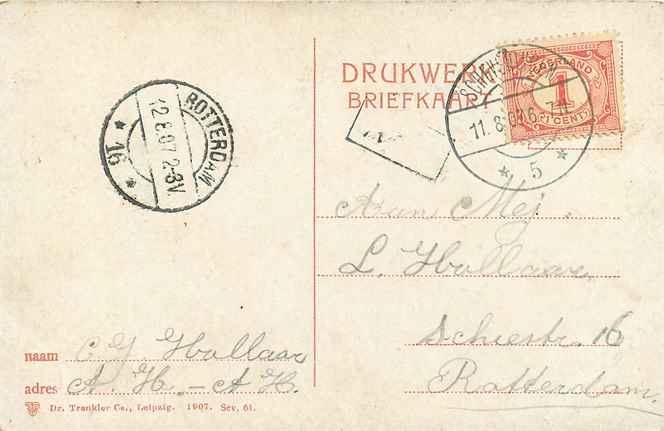 DRUKWERK
BRIEFKAART
NEDERLAND
1
CENT
11.8.07.6
5
ROTTERDAM
12.8.07 2-8V.
* 16 *
Aan Mej.
L. Hollaar
Schiestr. 16
Rotterdam.
naam C G Hollaar
adres A. H. - A H.
Dr. Trenkler Co., Leipzig. 1907. Sev. 61.